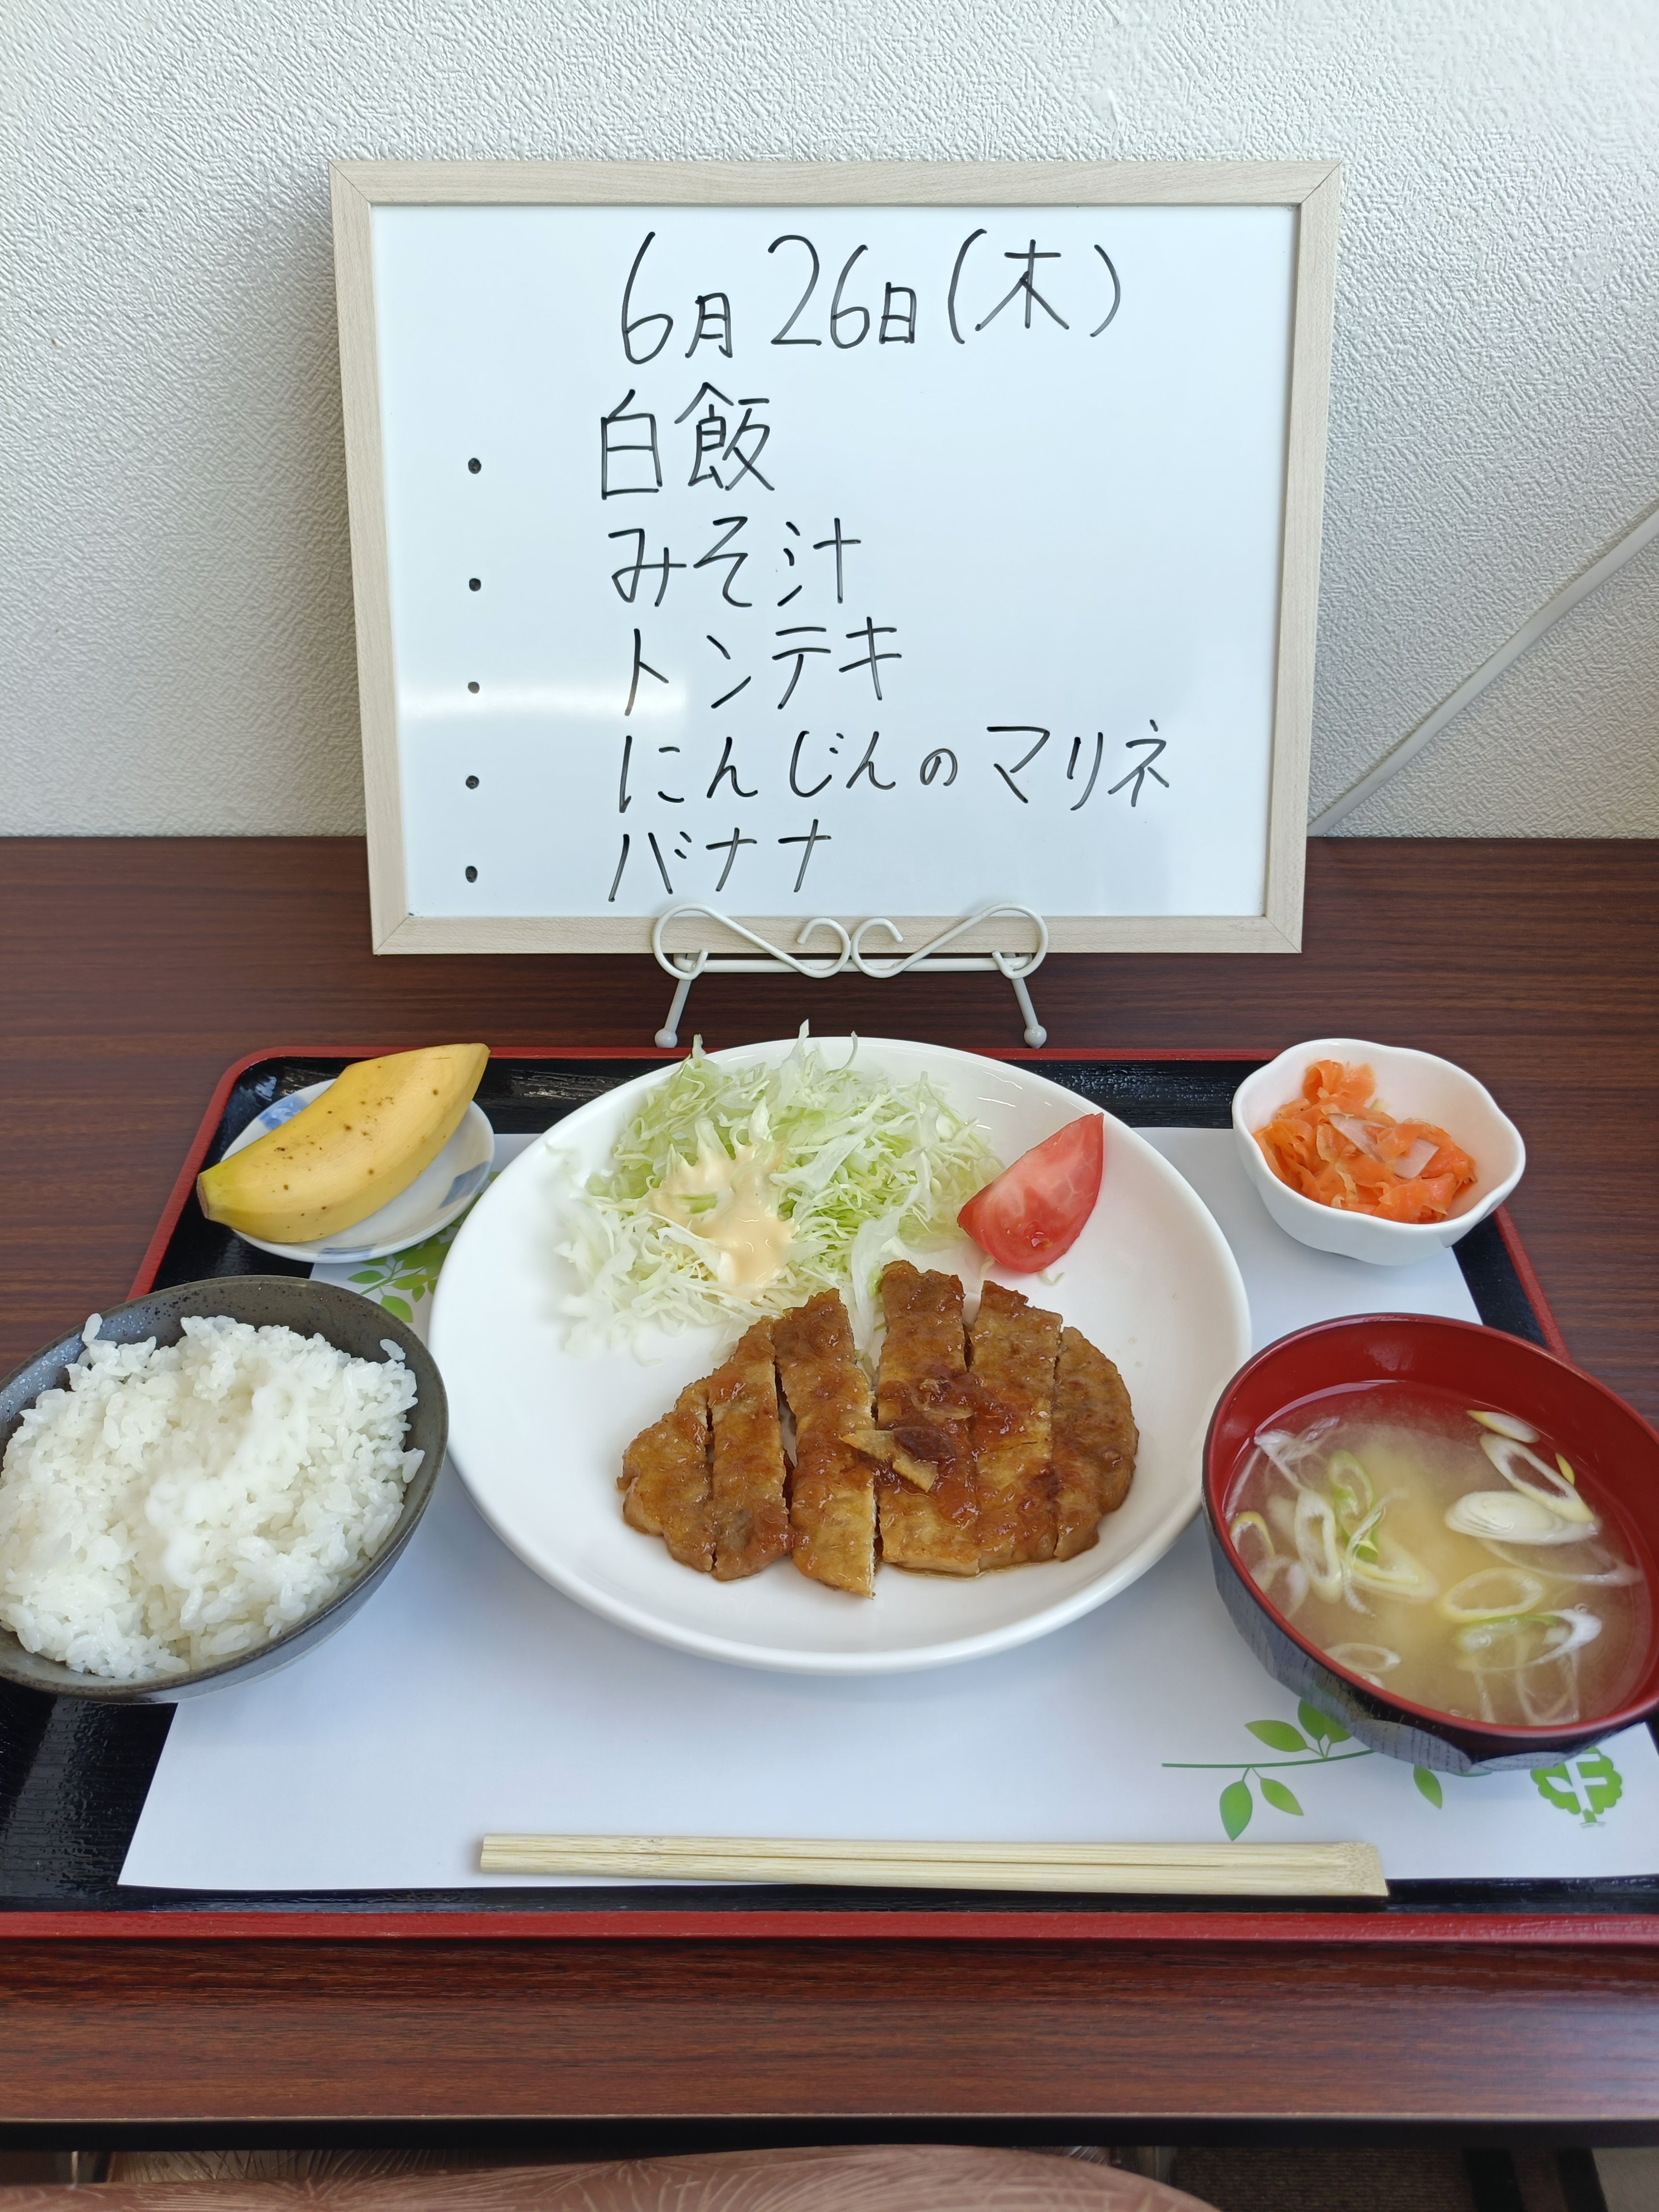 6月26日(木)
・ 白飯
・ みそ汁
・ トンテキ
・ にんじんのマリネ
・ バナナ